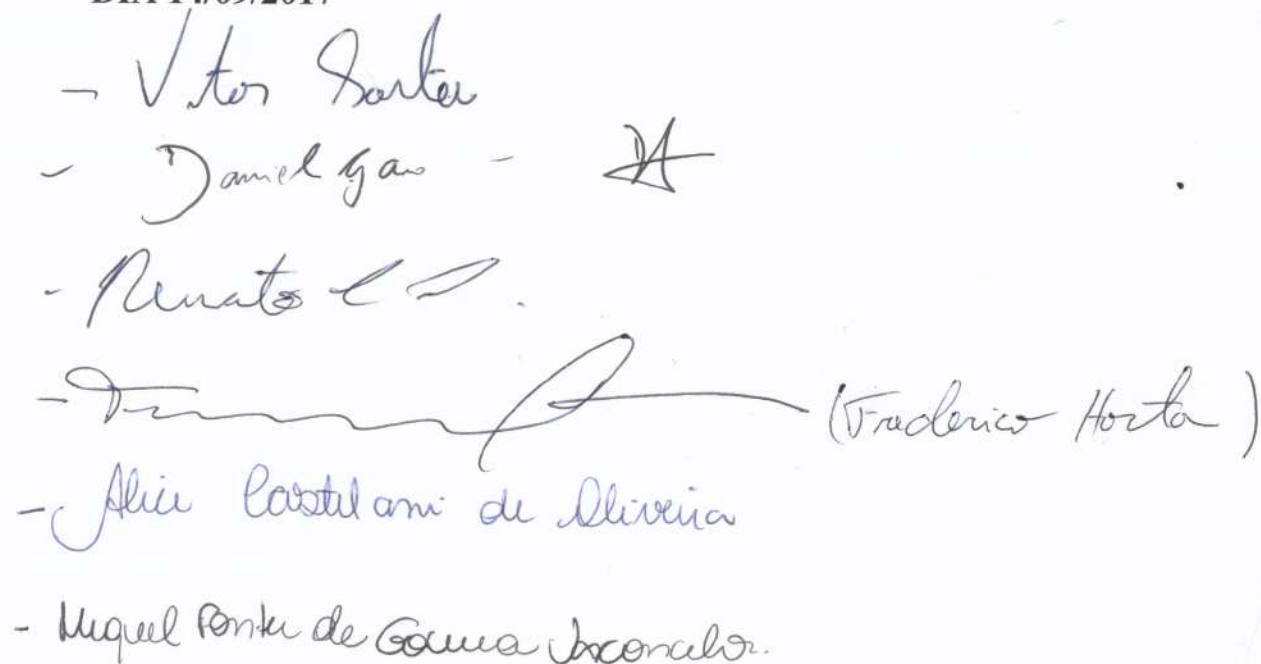 DIA 14/09/2017
- Vitor Sarter
- Daniel Gaio -
- Renato
- (Frederico Horta)
- Alice Castelani de Oliveira
- Miguel Ponter de Gama Vasconcelos.